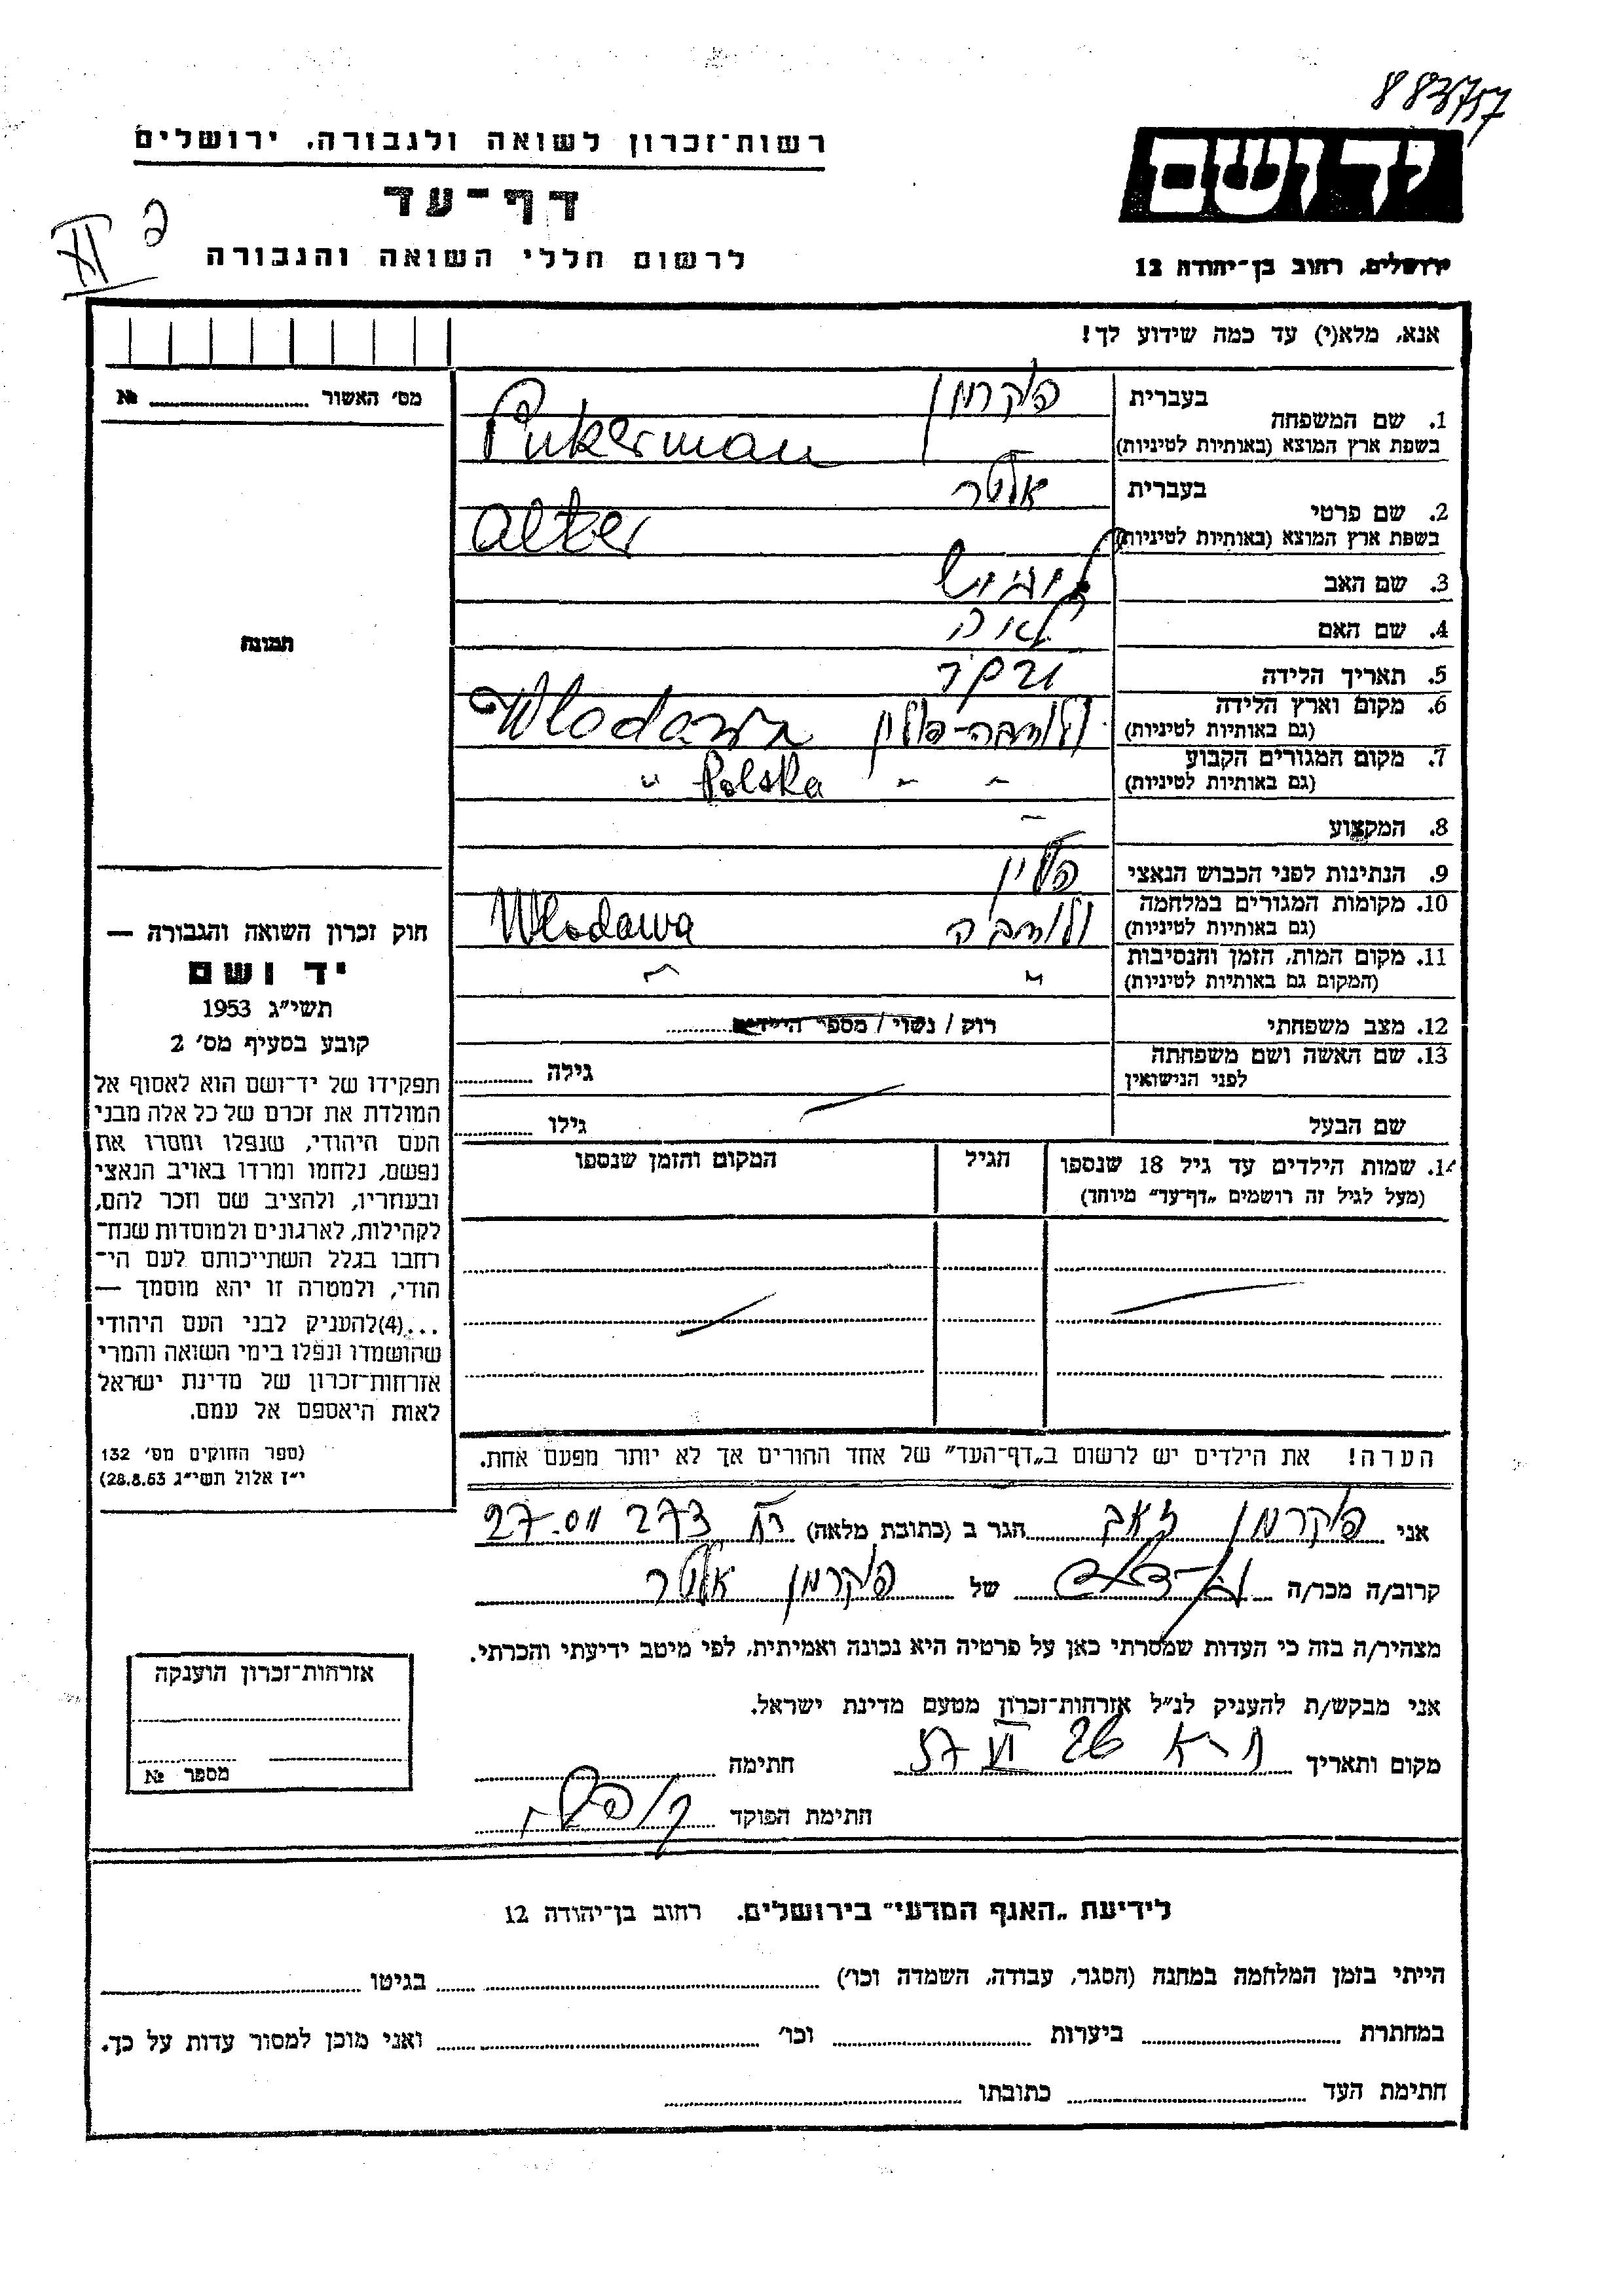 883757
רשות־זכרון לשואה ולגבורה, ירושלים
יד ושם
דף־עד
לרשום חללי השואה והגבורה
ירושלים, רחוב בן־יהודה 12
אנא, מלא(י) עד כמה שידוע לך!
מס׳ האשור № 
1. שם המשפחה בעברית פוקרמן
בשפת ארץ המוצא (באותיות לטיניות) Pukerman
2. שם פרטי בעברית אלטר
בשפת ארץ המוצא (באותיות לטיניות) alter
3. שם האב
4. שם האם לאה
5. תאריך הלידה
6. מקום וארץ הלידה (גם באותיות לטיניות) ולודבה-פולין Włodawa
7. מקום המגורים הקבוע (גם באותיות לטיניות) " Polska
8. המקצוע -
9. הנתינות לפני הכבוש הנאצי פולין
10. מקומות המגורים במלחמה (גם באותיות לטיניות) ולודבה Włodawa
11. מקום המות, הזמן והנסיבות (המקום גם באותיות לטיניות) "
12. מצב משפחתי רוק / נשוי / מספר הילדים
13. שם האשה ושם משפחתה לפני הנישואין גילה
שם הבעל גילו
14. שמות הילדים עד גיל 18 שנספו (מעל לגיל זה רושמים „דף־עד" מיוחד) הגיל המקום והזמן שנספו
תמונה
חוק זכרון השואה והגבורה —
יד ושם
תשי״ג 1953
קובע בסעיף מס׳ 2
תפקידו של יד־ושם הוא לאסוף אל
המולדת את זכרם של כל אלה מבני
העם היהודי, שנפלו ומסרו את
נפשם, נלחמו ומרדו באויב הנאצי
ובעוזריו, ולהציב שם וזכר להם,
לקהילות, לארגונים ולמוסדות שנח־
רחבו בגלל השתייכותם לעם הי־
הודי, ולמטרה זו יהא מוסמך —
...(4)להעניק לבני העם היהודי
שהושמדו ונפלו בימי השואה והמרי
אזרחות־זכרון של מדינת ישראל
לאות היאספם אל עמם.
(ספר החוקים מס׳ 132
י״ז אלול תשי״ג 28.8.53)
הערה! את הילדים יש לרשום ב„דף־העד" של אחד ההורים אך לא יותר מפעם אחת.
אני פוקרמן זאב הגר ב (כתובת מלאה) 273
קרוב/ה מכר/ה של פוקרמן אלטר
מצהיר/ה בזה כי העדות שמסרתי כאן על פרטיה היא נכונה ואמיתית, לפי מיטב ידיעתי והכרתי.
אני מבקש/ת להעניק לנ״ל אזרחות־זכרון מטעם מדינת ישראל.
מקום ותאריך 26 VI 57 חתימה
חתימת הפוקד
אזרחות־זכרון הוענקה
מספר №
לידיעת „האגף המדעי" בירושלים, רחוב בן־יהודה 12
הייתי בזמן המלחמה במחנה (הסגר, עבודה, השמדה וכו׳) בגיטו
במחתרת ביערות וכו׳ ואני מוכן למסור עדות על כך.
חתימת העד כתובתו